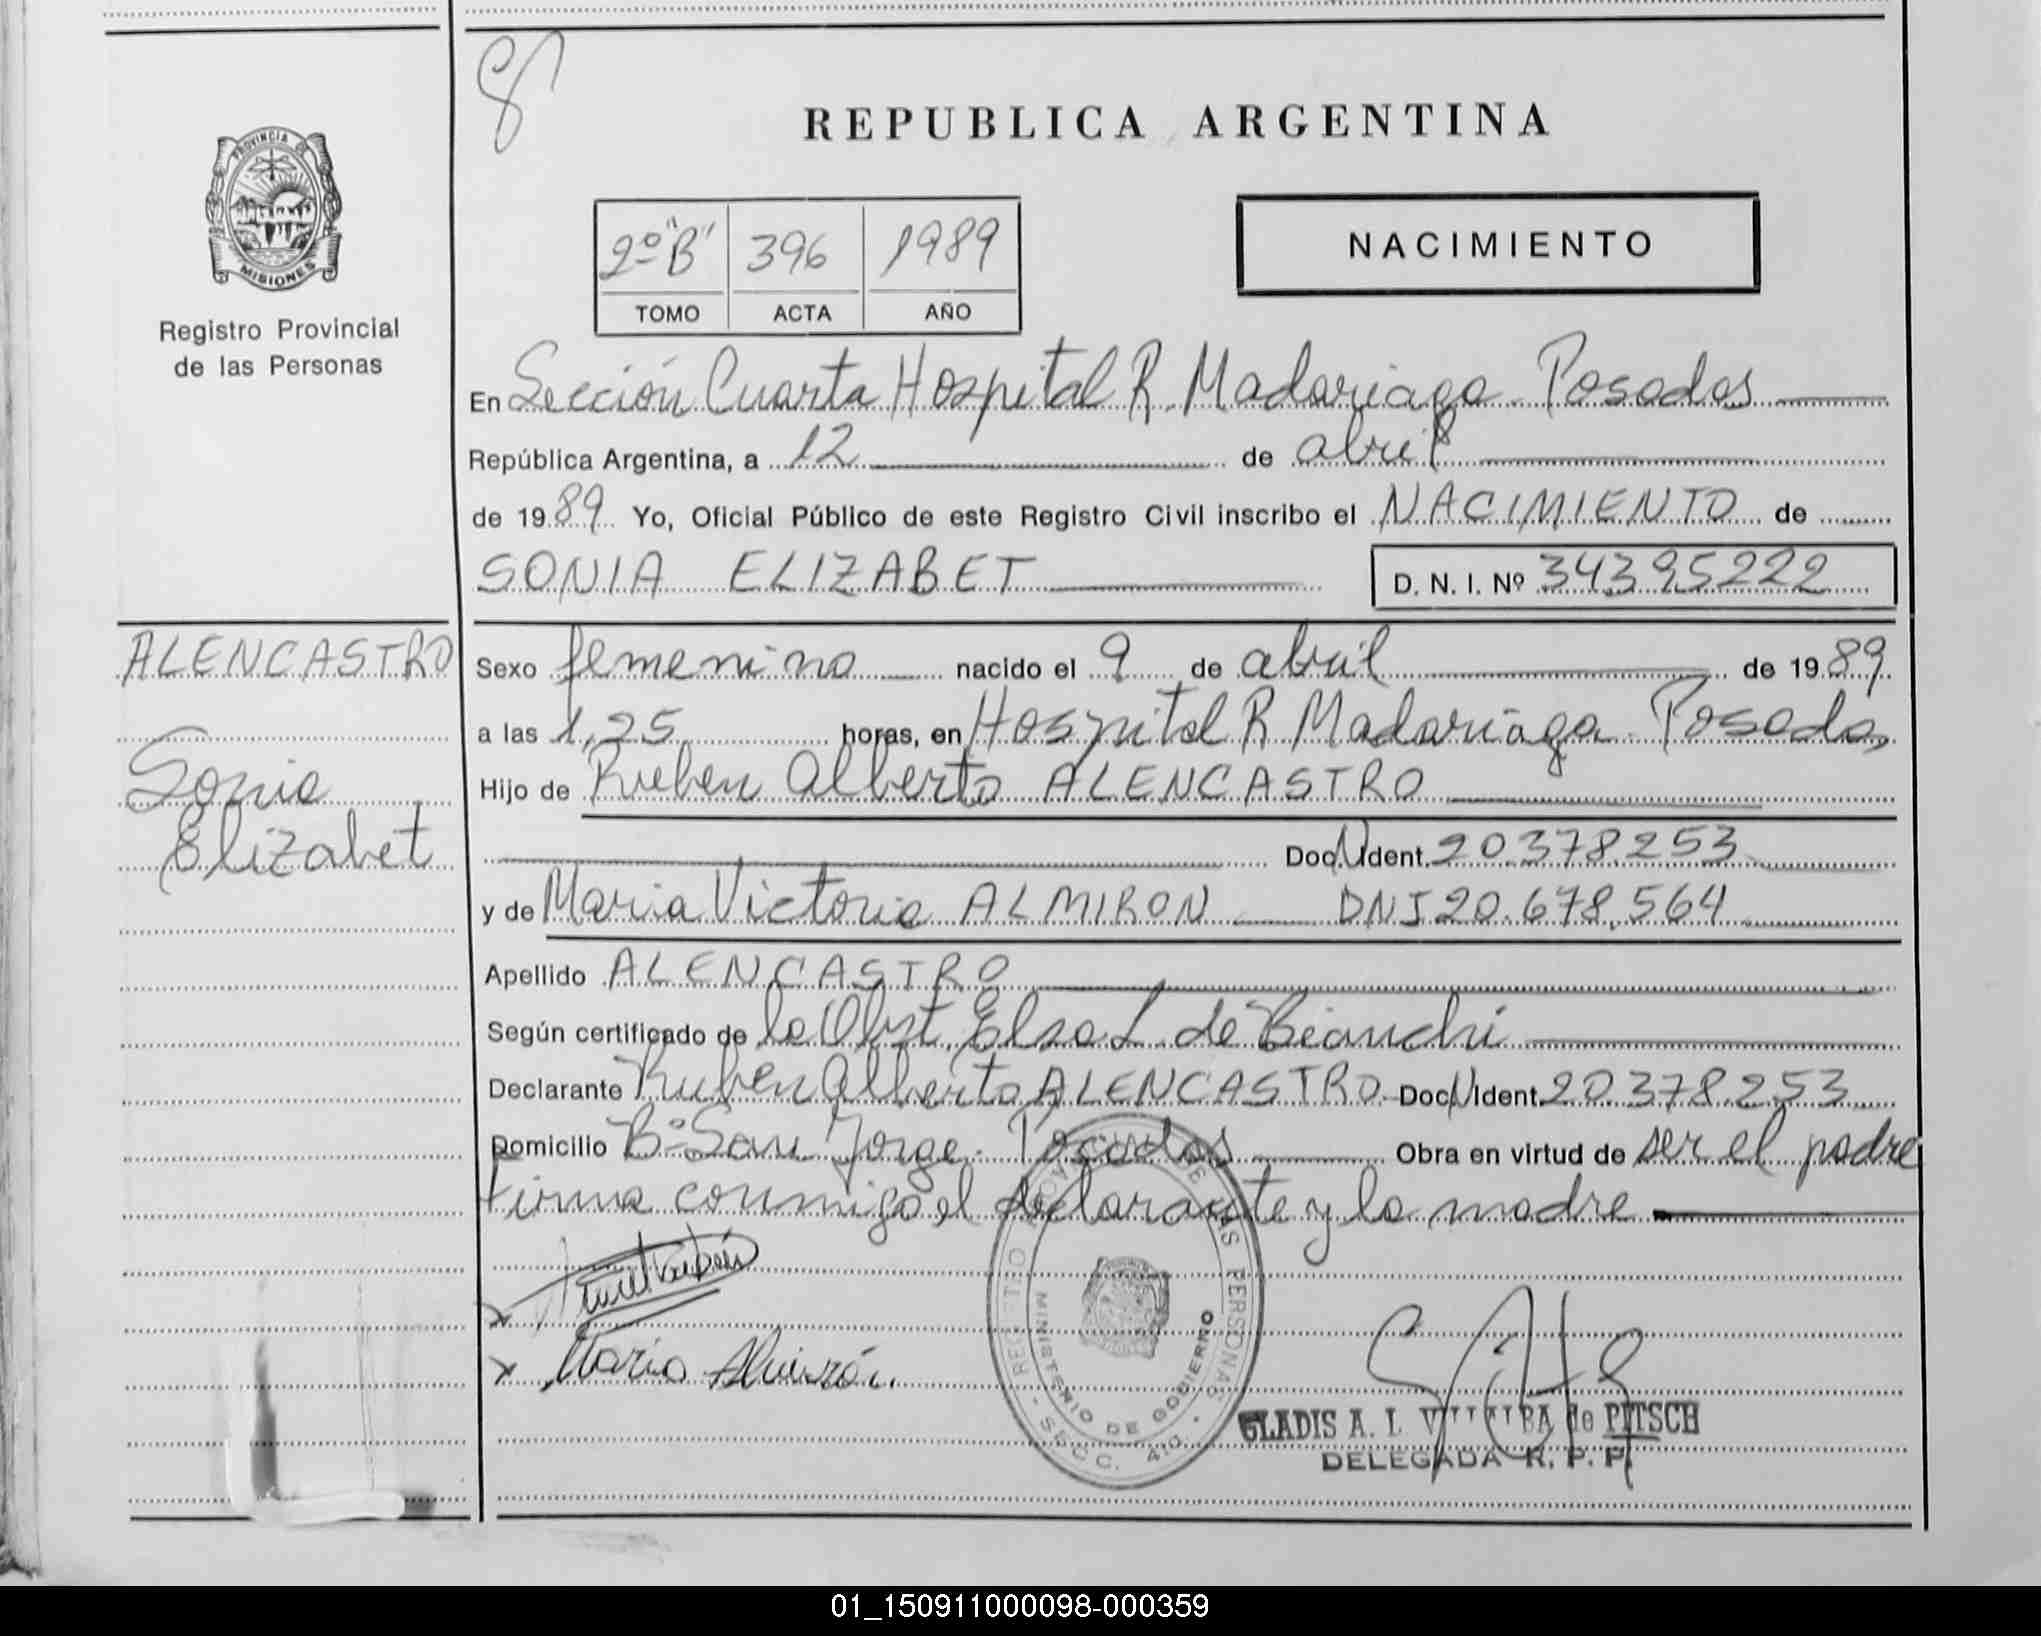 8
REPUBLICA ARGENTINA
PROVINCIA DE
MISIONES
Registro Provincial
de las Personas
2º "B" 396 1989
TOMO ACTA AÑO
NACIMIENTO
En Sección Cuarta Hospital R. Madariaga - Posadas
República Argentina, a 12 de abril
de 1989 Yo, Oficial Público de este Registro Civil inscribo el NACIMIENTO de
SONIA ELIZABET D. N. I. Nº 34.395.222
ALENCASTRO
Sonia
Elizabet
Sexo femenino nacido el 9 de abril de 1989
a las 1,25 horas, en Hospital R Madariaga - Posadas
Hijo de Ruben Alberto ALENCASTRO
Doc. N. Ident. 20.378.253
y de Maria Victoria ALMIRON DNI 20.678.564
Apellido ALENCASTRO
Según certificado de la Obst. Elsa L. de Bianchi
Declarante Ruben Alberto ALENCASTRO - Doc. N. Ident. 20.378.253
Domicilio Bº San Jorge - Posadas Obra en virtud de ser el padre
Firma conmigo el declarante y la madre
x
x Maria Almirón
REGISTRO PROVINCIAL DE LAS PERSONAS - SECC. 4ta. -
MINISTERIO DE GOBIERNO
GLADIS A. I. VILLALBA de PITSCH
DELEGADA R. P. P.
01_150911000098-000359